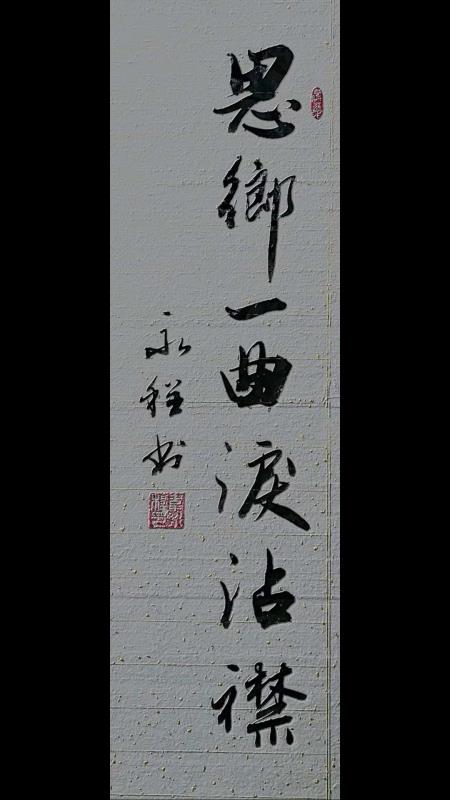 思鄉一曲淚沾襟
永程书